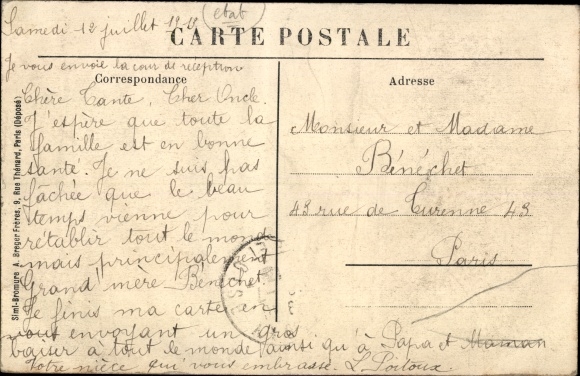 Samedi 12 juillet
(état)
CARTE POSTALE
Je vous envoie la cour de réception
Correspondance
Chère Tante, Cher Oncle.
J'espère que toute la
famille est en bonne
santé. Je ne suis pas
fâchée que le beau
temps vienne pour
rétablir tout le monde
mais principalement
Grand'mère Bénéchet.
Je finis ma carte en
vous envoyant un gros
baiser à tout le monde ainsi qu'à Papa et Maman
Votre nièce qui vous embrasse. L. Poitoux
Adresse
Monsieur et Madame
Bénéchet
43 rue de Turenne 43
Paris
Simi-Bromure A. Breger Frères, 9, Rue Thénard, Paris (Déposé)